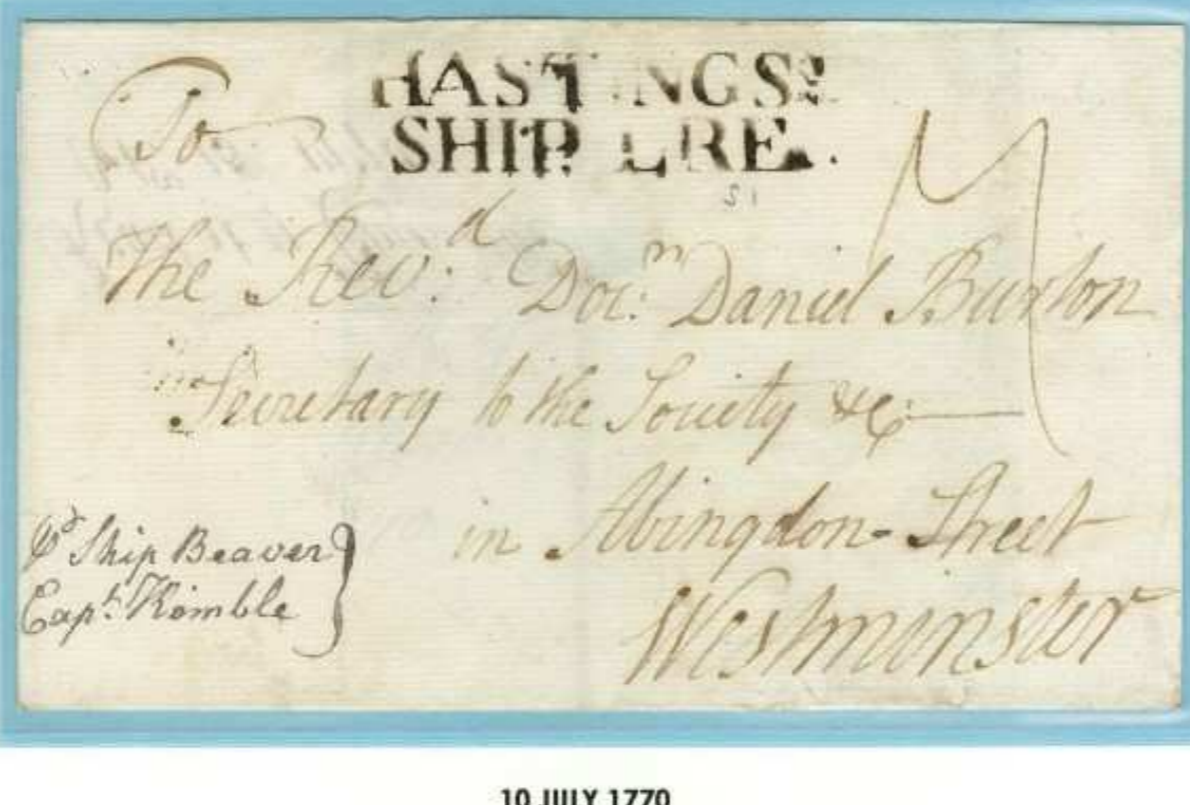 HASTINGS
SHIP LRE
To
The Rev:d Doc:n Daniel Burton
Secretary to the Society &c:
in Abingdon-Street
Westminster
Pr Ship Beaver
Capt: Kemble
7
10 JULY 1770